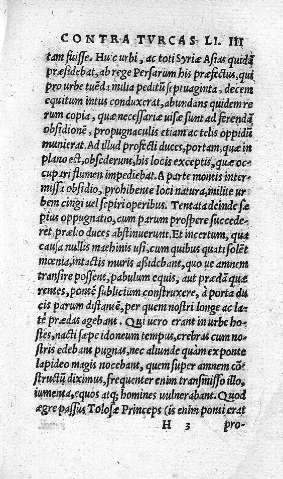 CONTRA TVRCAS LI. III
tam fuisse. Huic urbi, ac toti Syriæ Asiæ quidã
præsidebat, ab rege Persarum his præfectus, qui
pro urbe tuẽda milia peditũ septuaginta, decem
equitum intus conduxerat, abundans quidem re
rum copia, quæ necessariæ uisæ sunt ad ferendã
obsidionẽ, propugnaculis etiam ac telis oppidũ
munierat. Ad illud profecti duces, portam, quæ in
plano est, obsederunt, his locis exceptis, quæ oc-
cupari flumen impediebat. A parte montis inter
missa obsidio, prohibente loci natura, milite ur
bem cingi uel sepiri operibus. Tentata deinde sæ
pius oppugnatio, cum parum prospere succede-
ret, prælio duces abstinuerunt. Et incertum, quæ
causa nullis machinis usi, cum quibus quati solẽt
mœnia, intactis muris assidebant, quo ue amnem
transire possent, pabulum equis, aut prædã quæ
rentes, pontẽ sublicium construxere, à porta du
cis parum distantẽ, per quem nostri longe ac la-
tè prædas agebant. Qui uero erant in urbe ho-
stes, nacti sæpe idoneum tempus, crebras cum no
stris edebant pugnas, nec aliunde quàm ex ponte
lapideo magis nocebant, quem super amnem cõ
structũ diximus, frequenter enim transmisso illo,
iumenta, equos atq; homines uulnerabant. Quod
ægre passus Tolosæ Princeps (is enim ponti erat
H 3 pro-